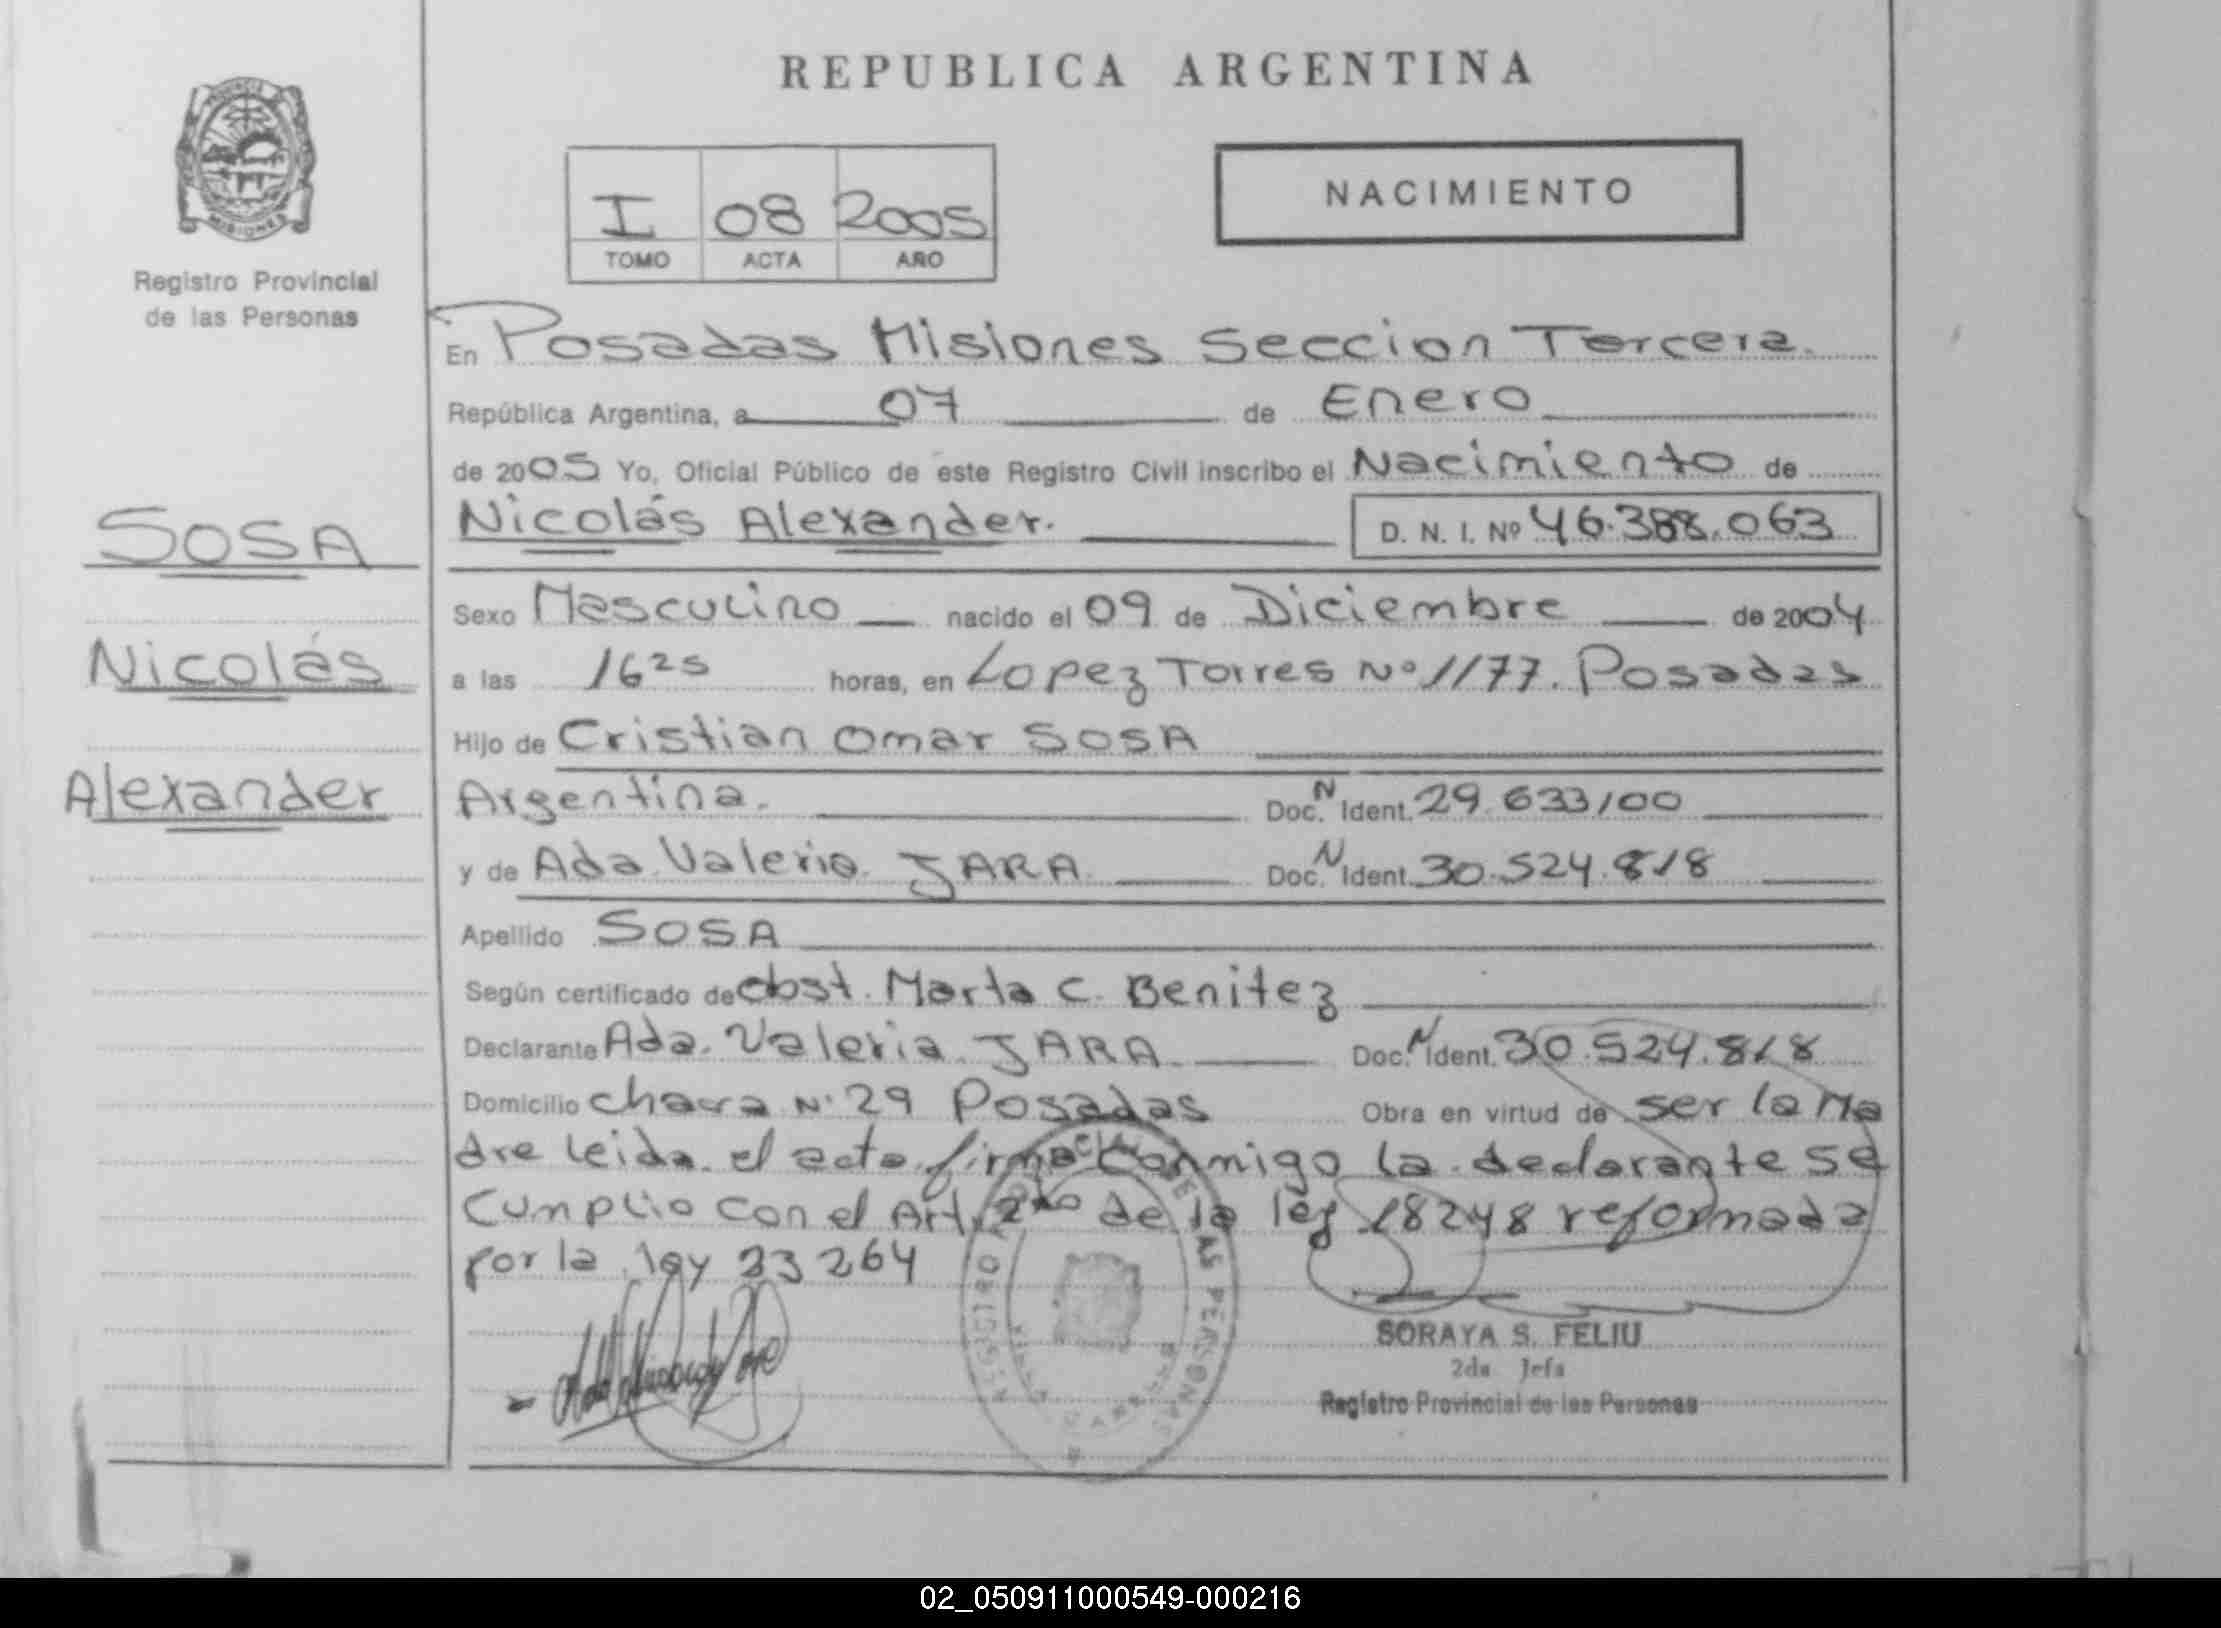 REPUBLICA ARGENTINA
PROVINCIA
MISIONES
Registro Provincial
de las Personas
I 08 2005
TOMO ACTA AÑO
NACIMIENTO
En Posadas Misiones Seccion Tercera.
República Argentina, a 07 de Enero
de 2005 Yo, Oficial Público de este Registro Civil inscribo el Nacimiento de
Nicolás Alexander. D. N. I. Nº 46.388.063
SOSA
Nicolás
Alexander
Sexo Masculino nacido el 09 de Diciembre de 2004
a las 16 25 horas, en Lopez Torres Nº 1177. Posadas
Hijo de Cristian Omar SOSA
Argentina. Doc. N Ident. 29.633100
y de Ada Valeria JARA Doc. N Ident. 30.524.818
Apellido SOSA
Según certificado de obst. Marta C. Benitez
Declarante Ada Valeria JARA Doc. N Ident. 30.524.818
Domicilio chacra Nº 29 Posadas Obra en virtud de ser la Ma
dre leida el acta firma conmigo la declarante se
Cumplio con el Art. 2do de la ley 18248 reformada
por la ley 23264
REGISTRO DE LAS PERSONAS
SORAYA S. FELIU
2da Jefa
Registro Provincial de las Personas
02_050911000549-000216